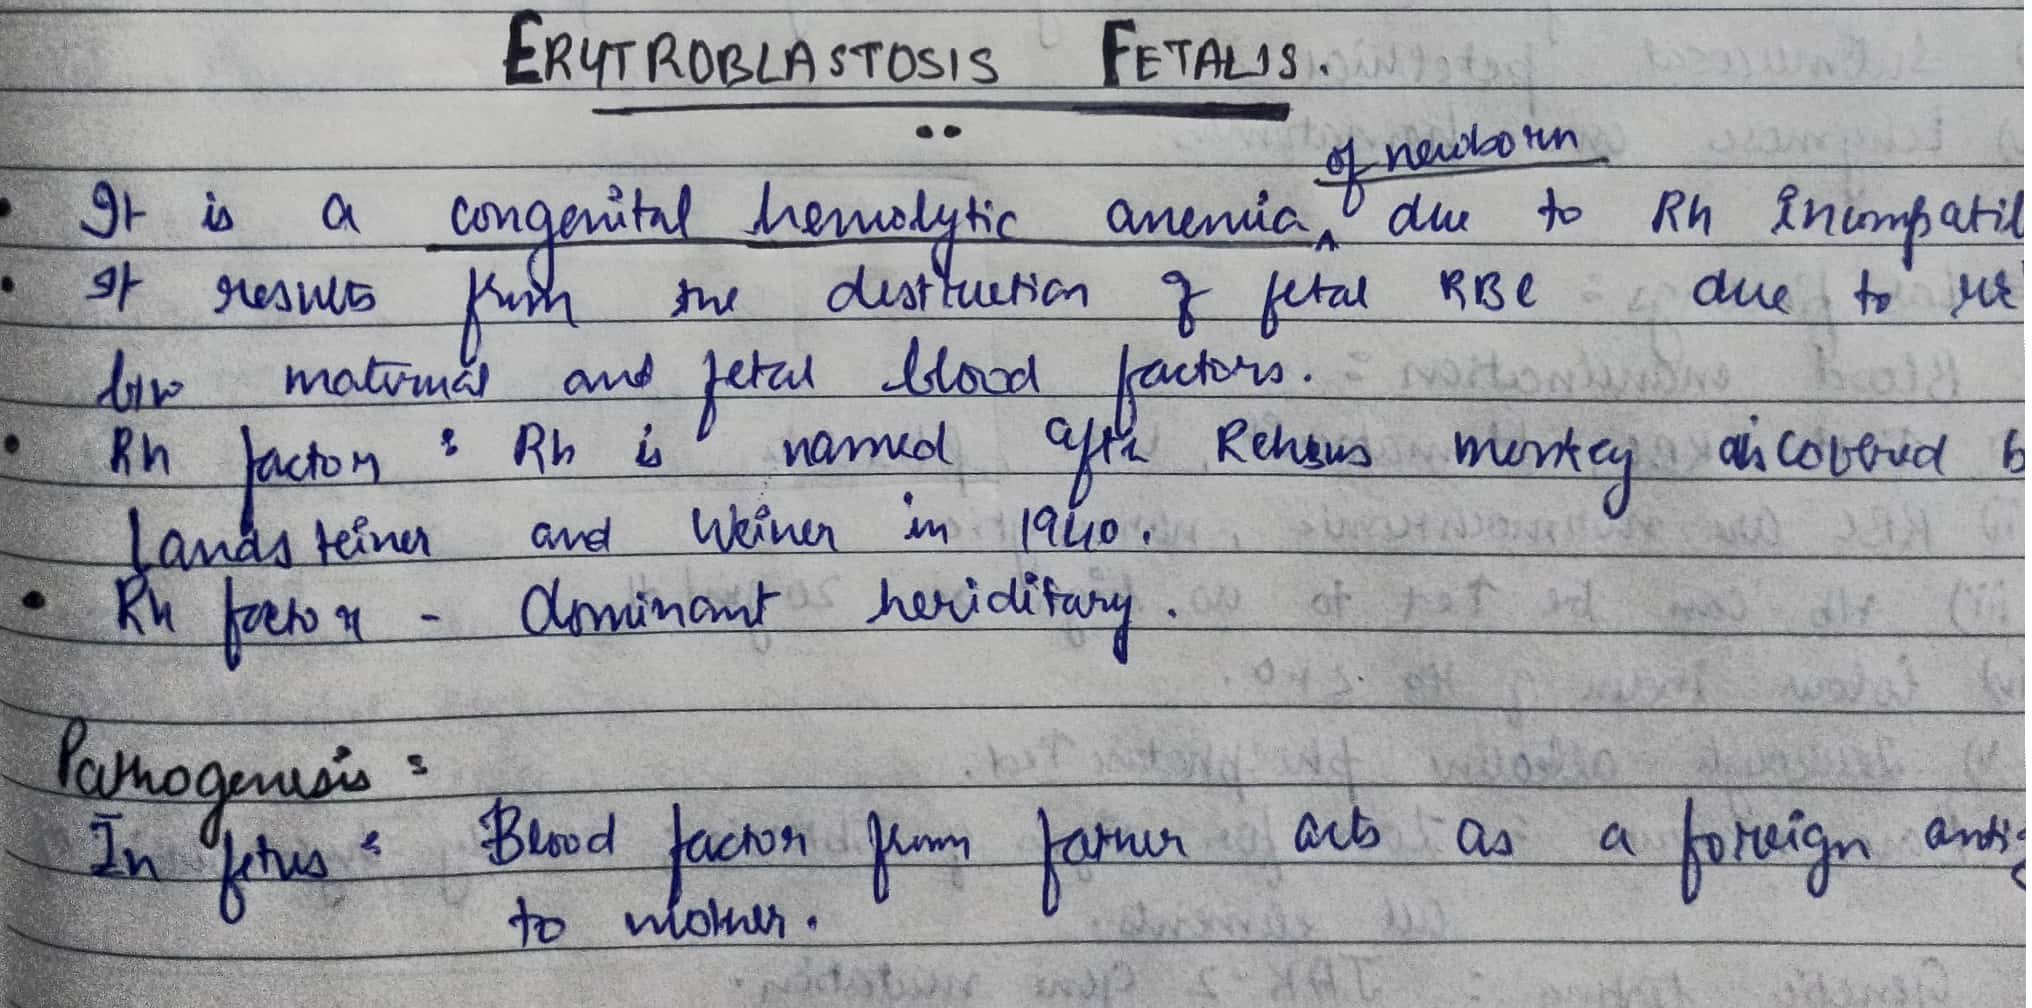 ERYTROBLASTOSIS FETALIS.
of newborn
• It is a congenital hemolytic anemia ^ due to Rh Incompatib
• It results from the destruction of fetal RBC due to
b/w maternal and fetal blood factors.
• Rh factor : Rh is named after Rehsus monkey discovered b
Landsteiner and Weiner in 1940.
• Rh factor - dominant heriditary.
Pathogenesis :
In fetus : Blood factor from father acts as a foreign antig
to mother.